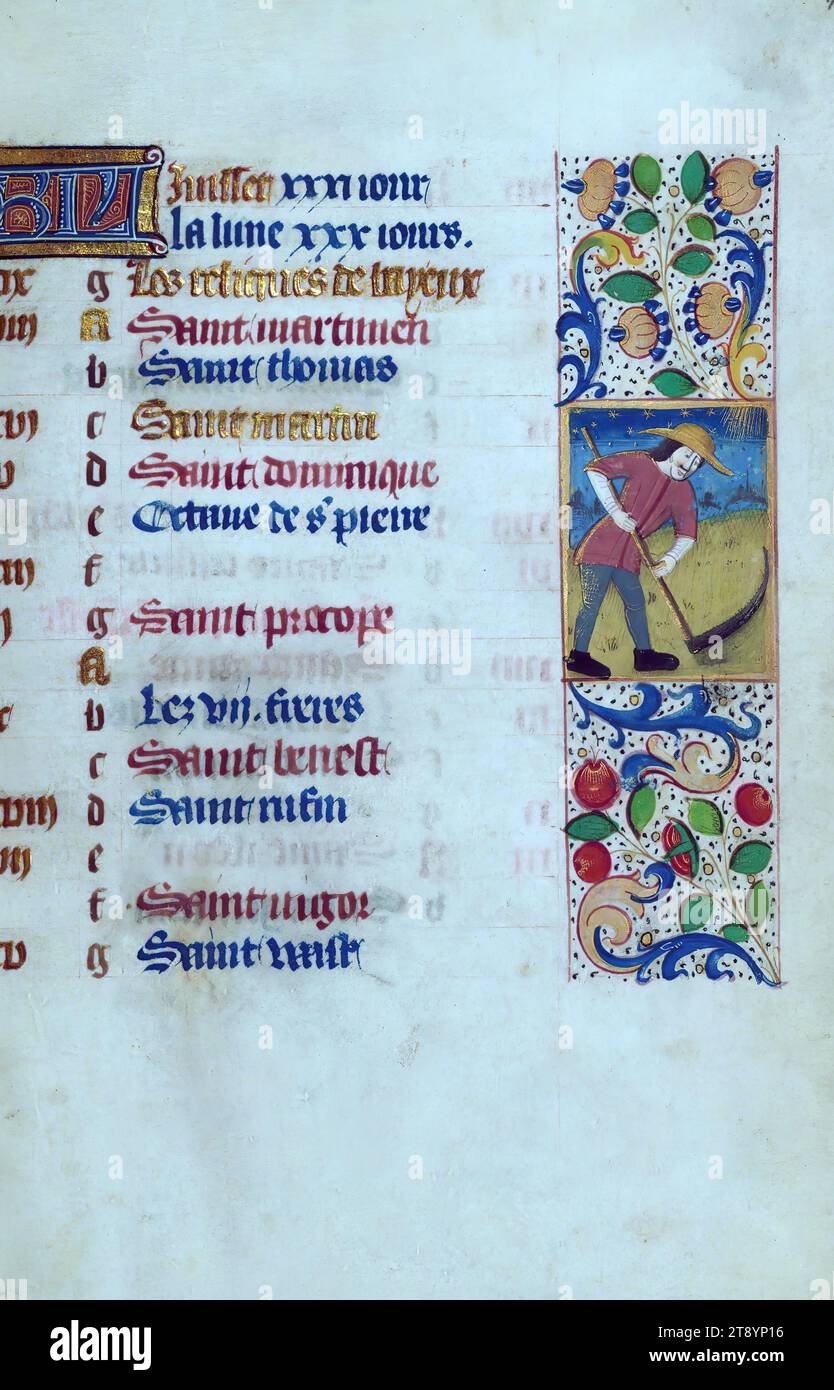 Juillet xxxi iour
la lune xxx iours.
g Les reliques de bayeux
A Saint martinien
b Saint thomas
c Saint martin
d Saint dominique
e Octaue de st pierre
f
g Saint procope
A
b Lez vij. freres
c Saint benest
d Saint rufin
e
f Saint vigor
g Saint vast
alamy
alamy
Image ID: 2T8YP16
www.alamy.com